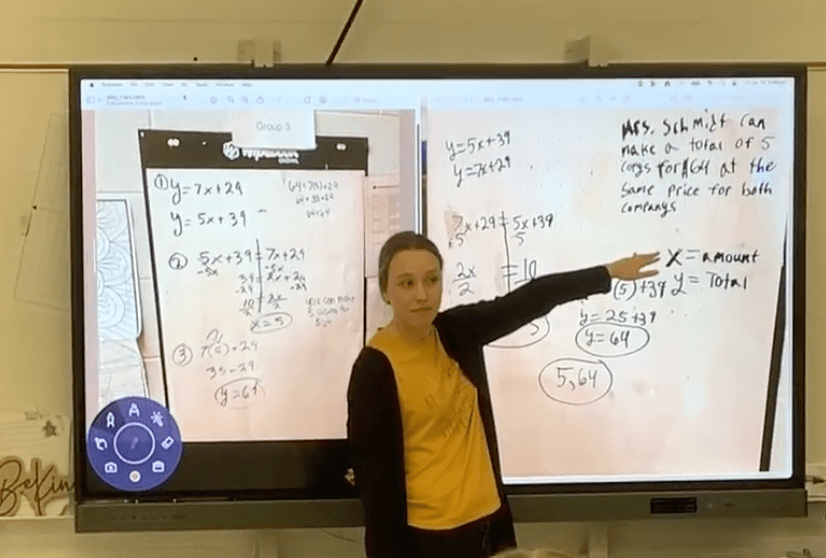 Group 3
① y=7x+29
y=5x+39
64=7(5)+29
64=35+29
64=64
② 5x+39=7x+29
-5x -5x
39=2x+29
-29 -29
10 = 2x
2 2
x=5
you can make
③ 7(5)+29
35+29
y=64
y=5x+39
y=7x+29
7x+29=5x+39
-5 5
2x = 10
2
5
(5)+39
y=25+39
y=64
5,64
Mrs. Schmidt can
make a total of 5
for $64 at the
same price for both
companys
X=amount
y=Total